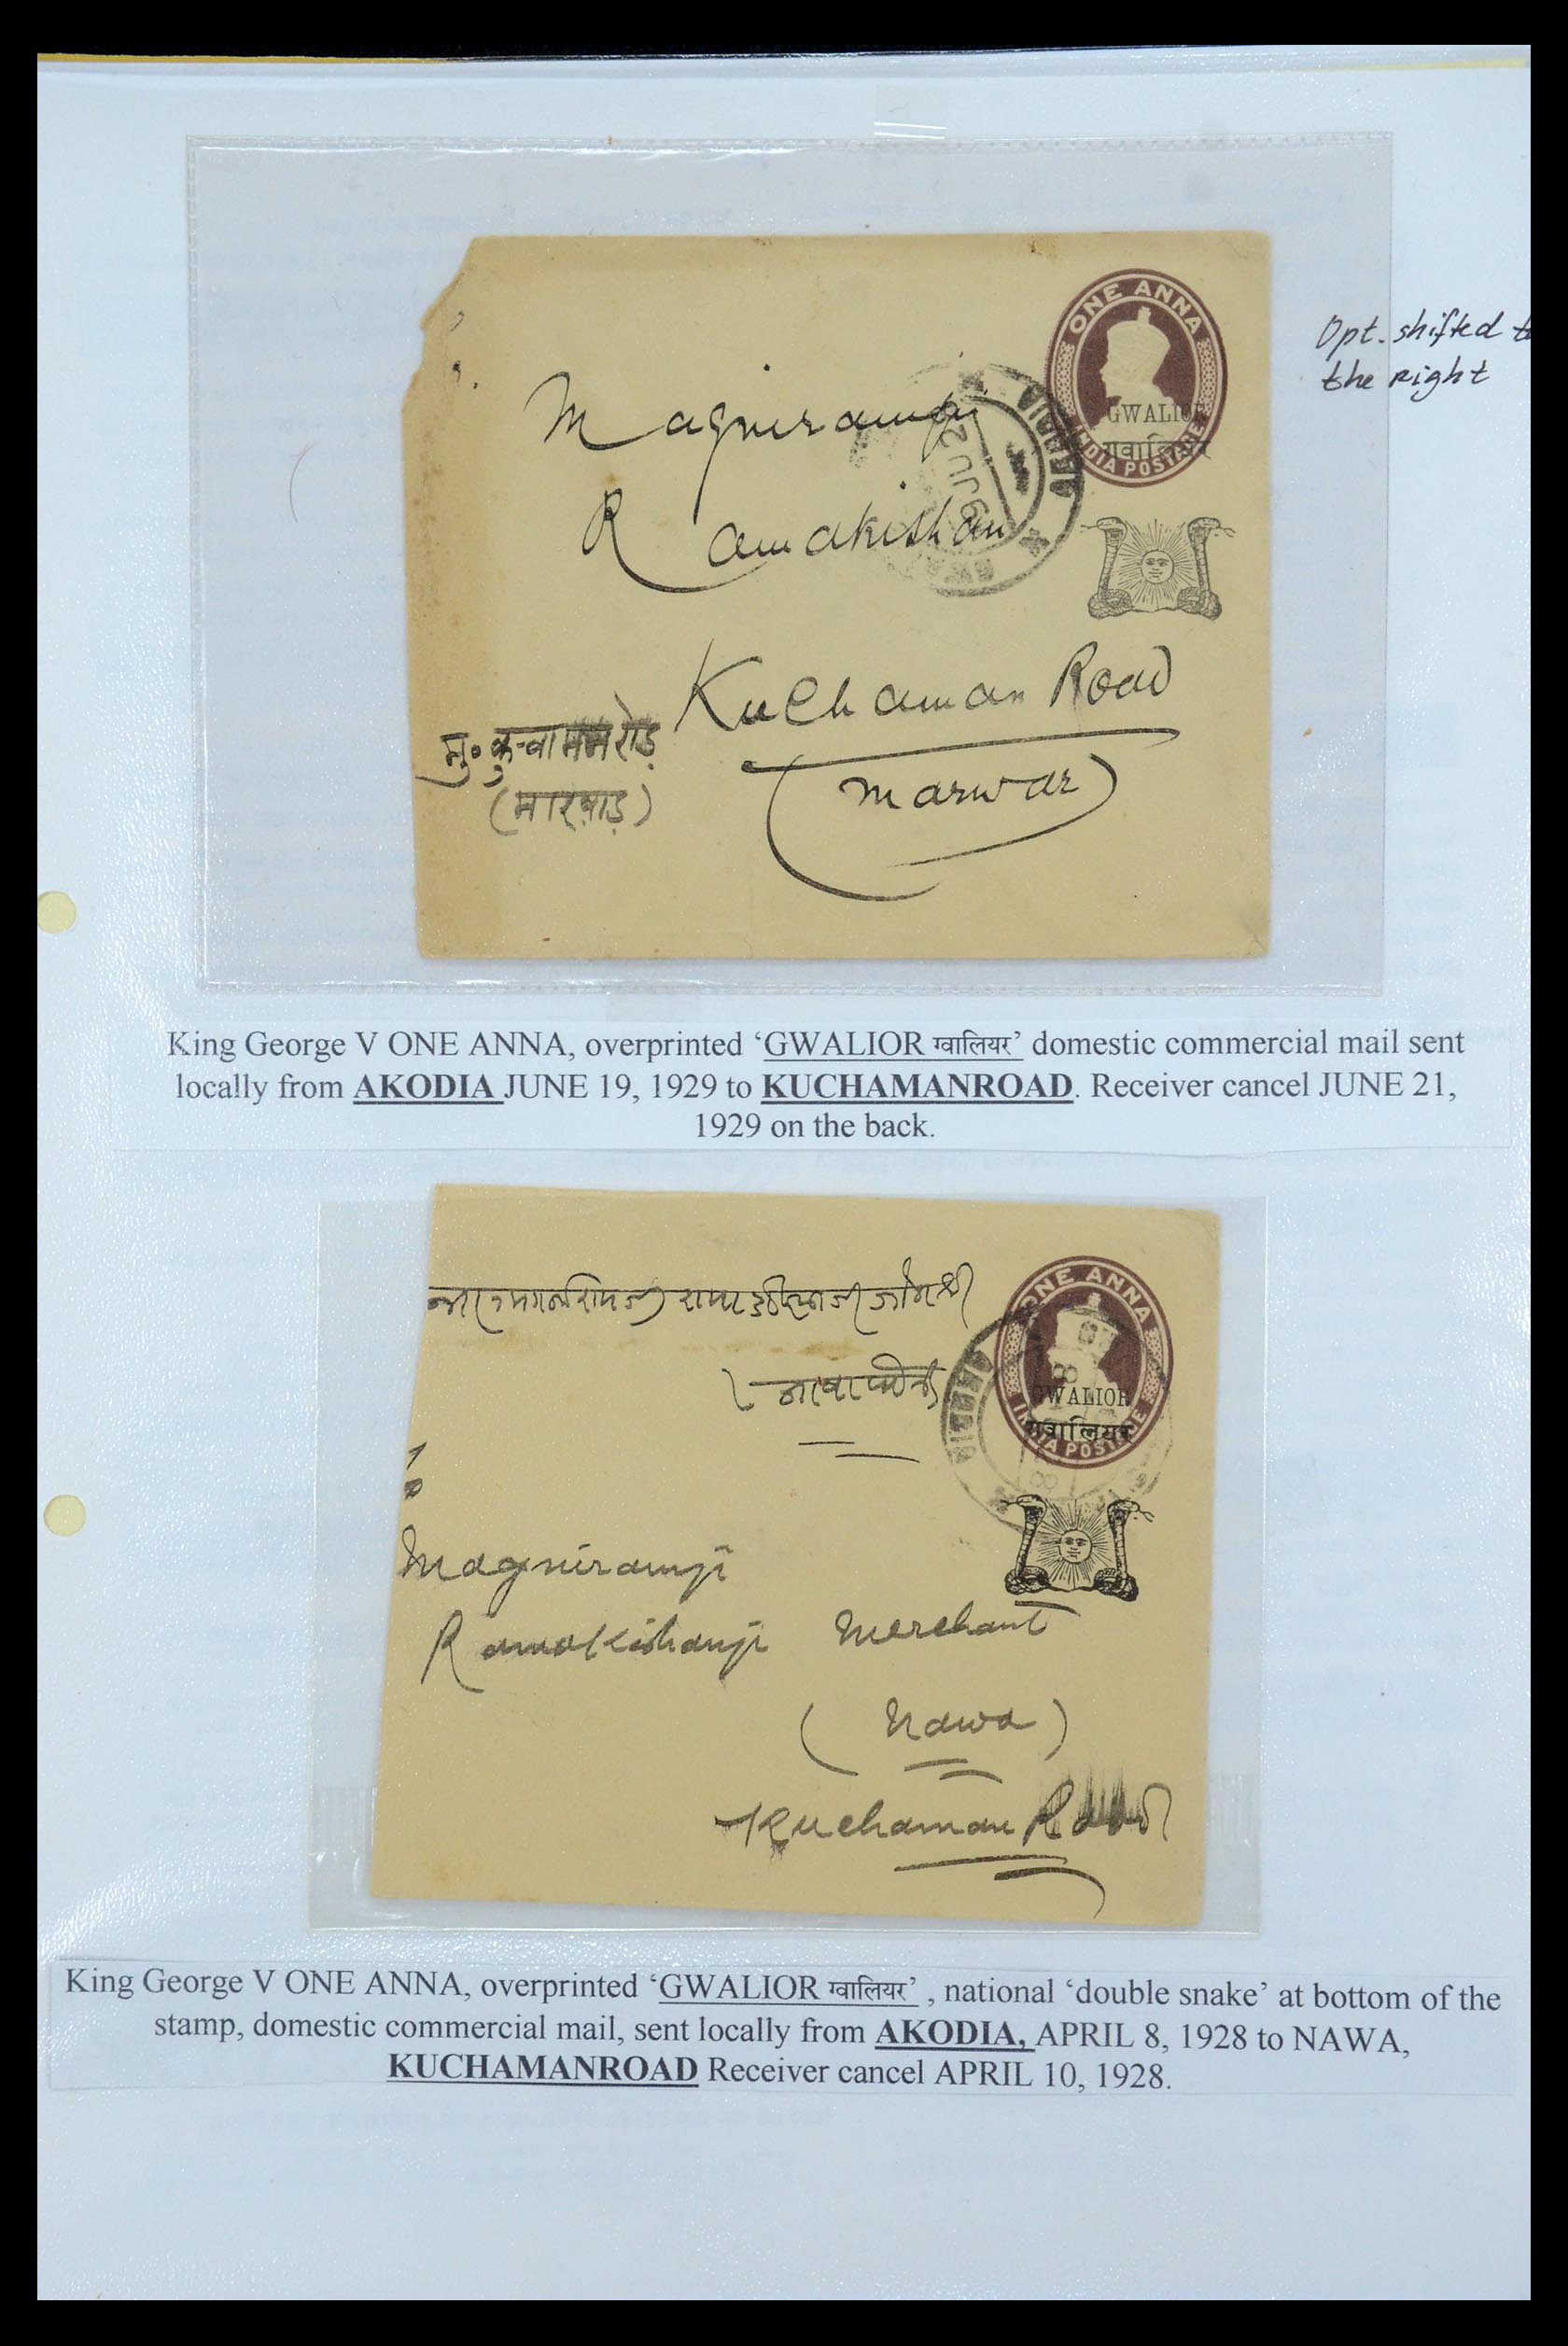 ONE ANNA
GWALIOR
गवालियर
INDIA POSTAGE
Opt. shifted to
the Right
AKODIA
Magniramji
Ramakishan
Kuchaman Road
(Marwar)
मु॰ कुचामनरोड़
(मारवाड़)
King George V ONE ANNA, overprinted ‘GWALIOR ग्वालियर’ domestic commercial mail sent
locally from AKODIA JUNE 19, 1929 to KUCHAMANROAD. Receiver cancel JUNE 21,
1929 on the back.
ONE ANNA
GWALIOR
गवालियर
INDIA POSTAGE
Magniramji
Ramakishanji Merchant
(Nawa)
Kuchaman Road
King George V ONE ANNA, overprinted ‘GWALIOR ग्वालियर’ , national ‘double snake’ at bottom of the
stamp, domestic commercial mail, sent locally from AKODIA, APRIL 8, 1928 to NAWA,
KUCHAMANROAD Receiver cancel APRIL 10, 1928.